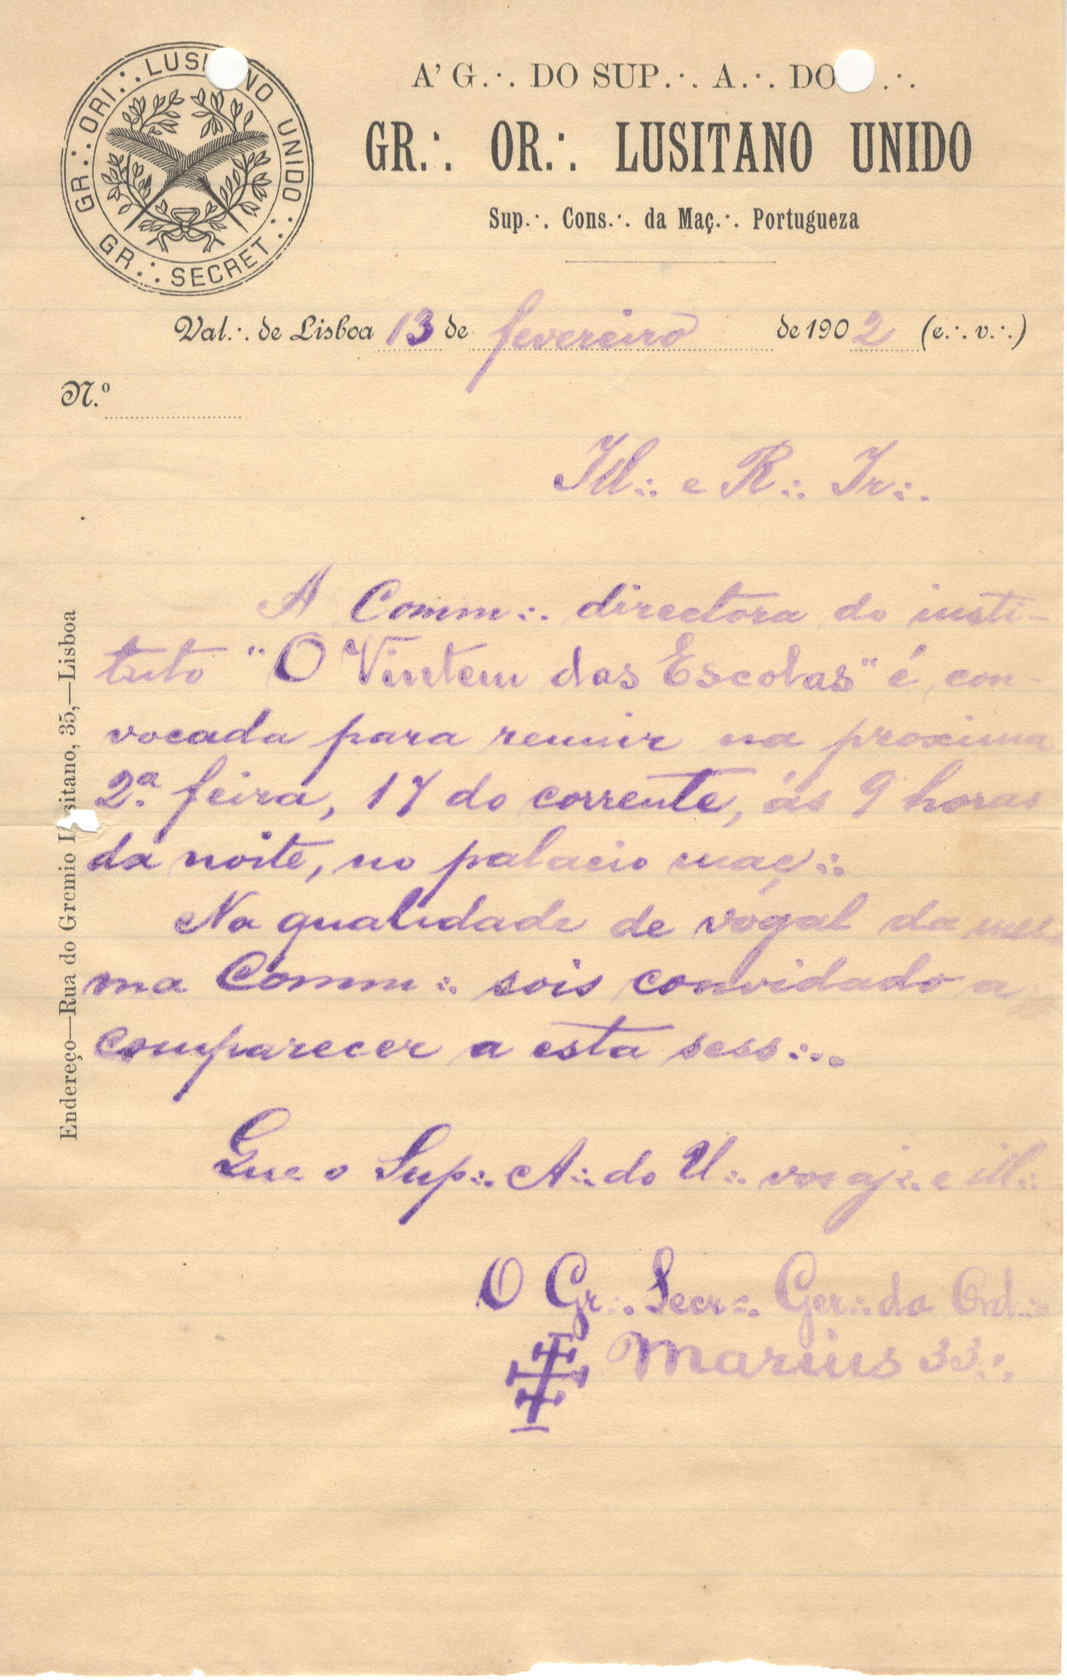 GR∴ ORI∴ LUSI NO UNIDO
GR∴ SECRET∴
A' G∴ DO SUP∴ A∴ DO ∴
GR∴ OR∴ LUSITANO UNIDO
Sup∴ Cons∴ da Maç∴ Portugueza
Val∴ de Lisboa 13 de fevereiro de 1902 (e∴ v∴)
N.º
Ill∴ e R∴ Ir∴
A Comm∴ directora do insti-
tuto "O Vintem das Escolas" é con-
vocada para reunir na proxima
2.ª feira, 17 do corrente, ás 9 horas
da noite, no palacio maç∴
Na qualidade de vogal da mes
ma Comm∴ sois convidado a
comparecer a esta sess∴.
Que o Sup∴ A∴ do U∴ vos aj∴ e ill∴
O Gr∴ Secr∴ Ger∴ da Ord∴
Marius 33∴
Endereço—Rua do Gremio L sitano, 35,—Lisboa